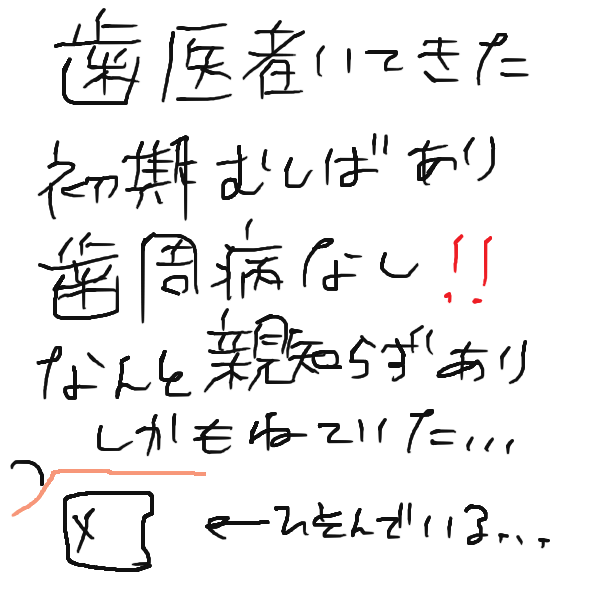 歯医者いてきた
初期むしばあり
歯周病なし!!
なんと親知らずあり
しかもねていた...
←ひそんでいる...